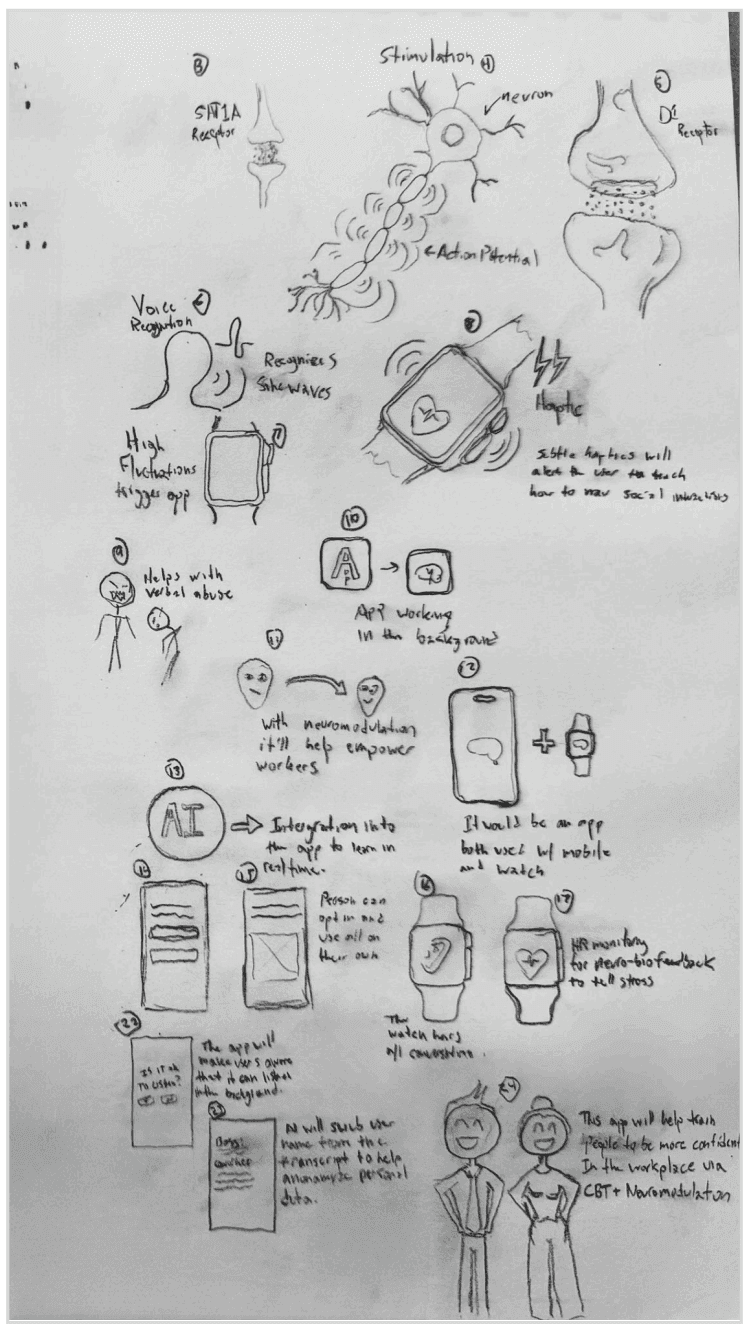 3
5HT1A
Receptor
Stimulation 4
neuron
Action Potential
5
D1
Receptor
Voice 6
Recognition
Recognizes
Sine waves
High
Fluctuations
trigger app
7
8
Haptic
Subtle haptics will
alert the user to teach
how to nav social interactions
9
Helps with
verbal abuse
10
App
App working
in the background
11
with neuromodulation
it'll help empower
workers
12
It would be an app
both used w/ mobile
and watch
13
AI
Intergration into
the app to learn in
realtime.
14
15
Person can
opt in and
use all on
their own
16
The
watch hears
all
17
HR monitoring
for neuro-biofeedback
to tell stress
22
Is it ok
to listen?
The app will
make users aware
that it can listen
in the background.
23
AI will scrub user
name from the
transcript to help
anonamyze personal
data.
24
This app will help train
people to be more confident
In the workplace via
CBT + Neuromodulation